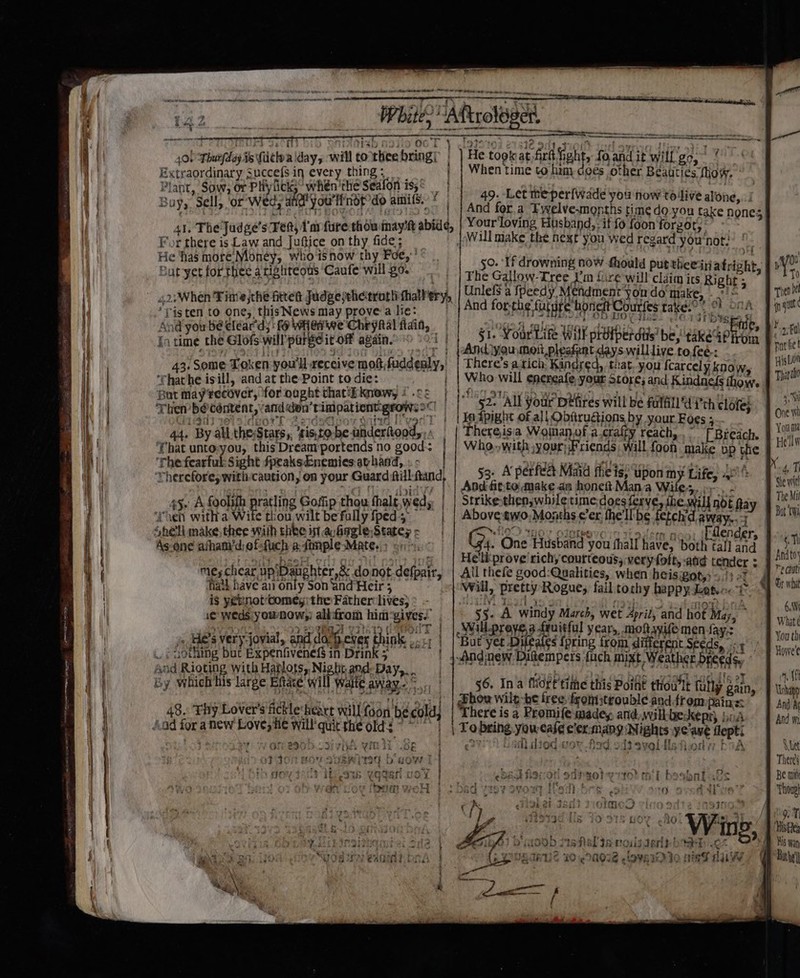 142
White, Astrologer.
40. Thursday is such a day, will to thee bring
Extraordinary Success in every thing;
Plant, Sow, or Physick, when the Season is,
Buy, Sell, or Wed, and you'll not do amiss.
41. The Judge's Test, I'm sure thou may'st abide,
For there is Law and Justice on thy side;
He has more Money, who is now thy Foe,
But yet for thee a righteous Cause will go.
42. When Time, the fittest Judge, the truth shall try,
Listen to one, this News may prove a lie:
And you be clear'd,
In time the Gloss will purge it off again.
43. Some Token you'll receive most suddenly,
That he is ill, and at the Point to die:
But may recover, for ought that I know;
Then be content, and don't impatient grow.
44. By all the Stars, 'tis to be understood,
That unto you, this Dream portends no good:
The fearful Sight speaks Enemies at hand,
Therefore, with caution, on your Guard still stand.
45. A foolish pratling Gossip thou shalt wed,
Then with a Wife thou wilt be fully sped;
She'll make thee wish thee in a single State,
As one asham'd of such a simple Mate.
me, chear up Daughter, & do not despair,
shall have an only Son and Heir;
is yet not come, the Father lives,
he weds you now, all from him gives.
He's very jovial, and doth ever think
nothing but Expensiveness in Drink;
And Rioting with Harlots, Night and Day,
By which his large Estate will waste away.
48. Thy Lover's fickle heart will soon be cold,
And for a new Love, he will quit the old:
He took at first sight, so and it will go,
When time to him does other Beauties show.
49. Let me perswade you now to live alone,
And for a Twelve-months time do you take none;
Your loving Husband, if so soon forgot,
Will make the next you wed regard you not.
50. If drowning now should put thee in afright,
The Gallow-Tree I'm sure will claim its Right;
Unless a speedy Mendment you do make,
And for the future honest Courses take.
51. Your Life will prosperous be, take it from
And you most pleasant days will live to see:
There's a rich Kindred, that you scarcely know,
Who will encrease your Store, and Kindness show.
52. All your Desires will be fulfill'd i'th close,
In spight of all Obstructions by your Foes;
There is a Woman of a crafty reach, [Breach.
Who with your Friends will soon make up the
53. A perfect Maid she is, upon my Life,
And fit to make an honest Man a Wife;
Strike then, while time does serve, she will not stay
Above two Months e'er she'll be fetch'd away.
[slender,
54. One Husband you shall have, both tall and
He'll prove rich, courteous, very soft, and tender:
All these good Qualities, when he is got,
Will, pretty Rogue, fall to thy happy Lot.
55. A windy March, wet April, and hot May,
Will prove a fruitful year, most wise men say:
But yet Diseases spring from different Seeds,
And new Distempers such mixt Weather breeds.
56. In a short time this Point thou'lt fully gain,
Thou wilt be free from trouble and from pain:
There is a Promise made, and will be kept,
To bring you ease e'er many Nights ye've slept.